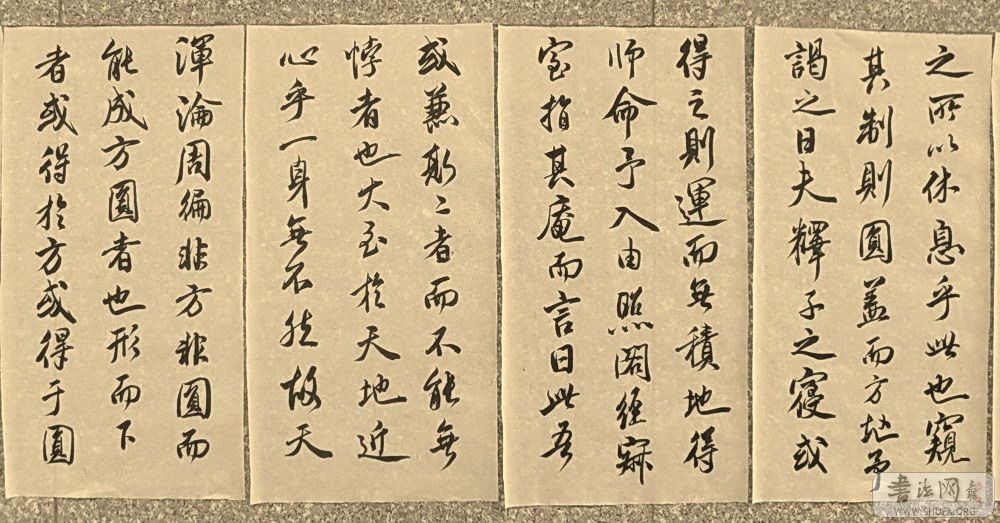 之所以休息乎此也窺
其制則圓蓋而方址予
謁之曰夫釋子之寢或
得之則運而無積地得
師命予入由照閣經寂
室指其庵而言曰此吾
或兼斯二者而不能無
悖者也大至於天地近
心乎一身無不然故天
渾淪周徧非方非圓而
能成方圓者也形而下
者或得於方或得于圓
书法网
WWW.SHUFA.ORG